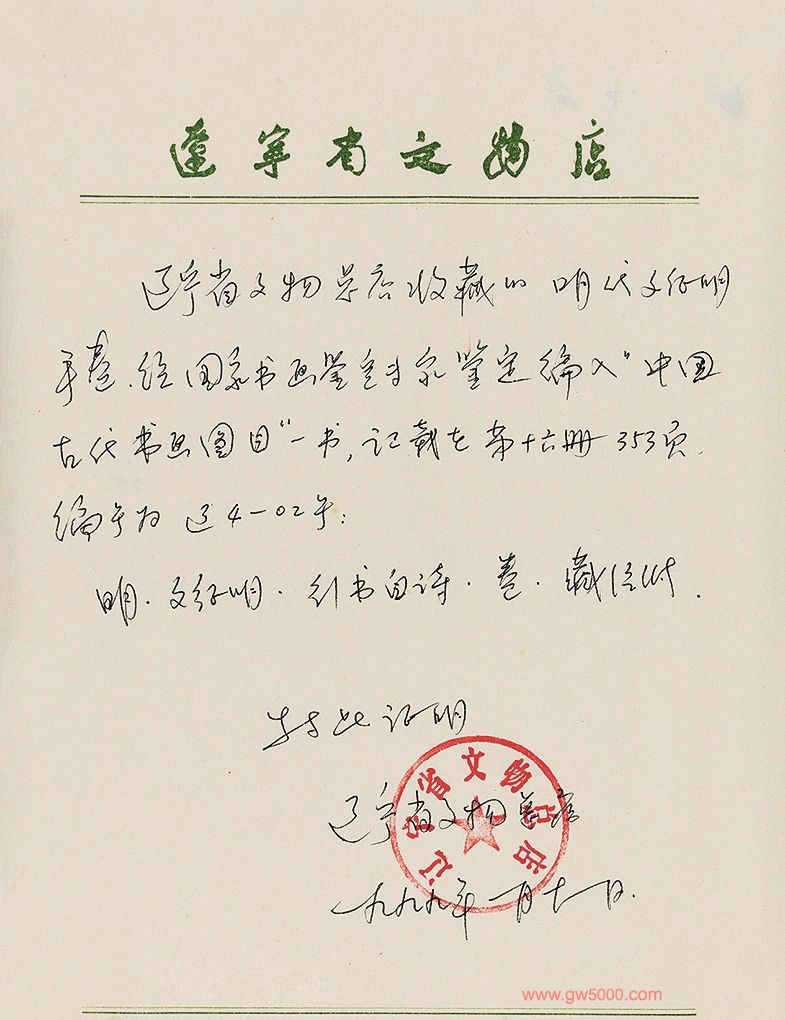 辽宁省文物店
辽宁省文物总店收藏的 明代文征明
手卷.经国家书画鉴定专家鉴定编入“中国
古代书画图目”一书,记载在第十六册353页.
编号为 辽4-02号:
明.文征明.行书自诗.卷.藏经纸.
特此证明
辽宁省文物总店
辽宁省文物总店
一九九九年一月十一日.
www.gw5000.com